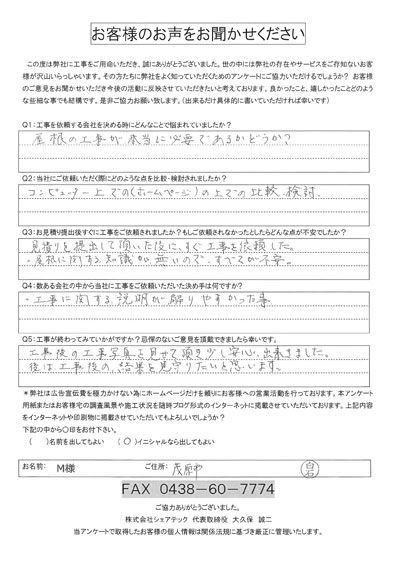 お客様のお声をお聞かせください
この度は弊社に工事をご用命いただき、誠にありがとうございました。世の中には弊社の存在やサービスをご存知ないお客
様が沢山いらっしゃいます。その方たちに弊社をよく知っていただくためのアンケートにご協力いただけるでしょうか? お客様
のご意見をお聞かせいただき今後の活動に反映させていただきたいと考えております。良かったこと、嬉しかったことどのよう
な些細な事でも結構です。是非ご協力お願い致します。(出来るだけ具体的に書いていただければ幸いです)
Q1:工事を依頼する会社を決める時にどんなことで悩まれていましたか?
屋根の工事が本当に必要であるかどうか?
Q2:当社にご依頼いただく際にどのような点を比較・検討されましたか?
コンピューター上での(ホームページ)の上での比較、検討.
Q3:お見積り提出後すぐに工事をご依頼されましたか?もしご依頼されなかったとしたらどんな点が不安でしたか?
見積りを提出して頂いた後に、すぐ工事を依頼した。
・屋根に関する知識が無いので、すべてが不安。
Q4:数ある会社の中から当社に工事をご依頼いただいた決め手は何ですか?
・工事に関する説明が解りやすかった事。
Q5:工事が終わってみていかがですか?忌憚のないご意見を頂戴できましたら幸いです。
工事後の工事写真を見せて頂き少し安心、出来ました。
後は工事後の、結果を見守りたいと思います。
*弊社は広告宣伝費を極力かけない為にホームページだけを頼りにお客様への営業活動を行っております。本アンケート
用紙またはお客様宅の調査風景や施工状況を随時ブログ形式のインターネットに掲載させていただいております。上記内容
をインターネットや印刷物に掲載させていただいてもよろしいでしょうか?
下記の中から〇印をお付下さい。
( )名前を出してもよい (〇)イニシャルなら出してもよい
お名前: M様 ご住所: 茂原市 白石
FAX 0438-60-7774
ご協力ありがとうございました。
株式会社シェアテック 代表取締役 大久保 誠二
当アンケートで取得したお客様の個人情報は関係法規に基づき厳正に管理いたします。